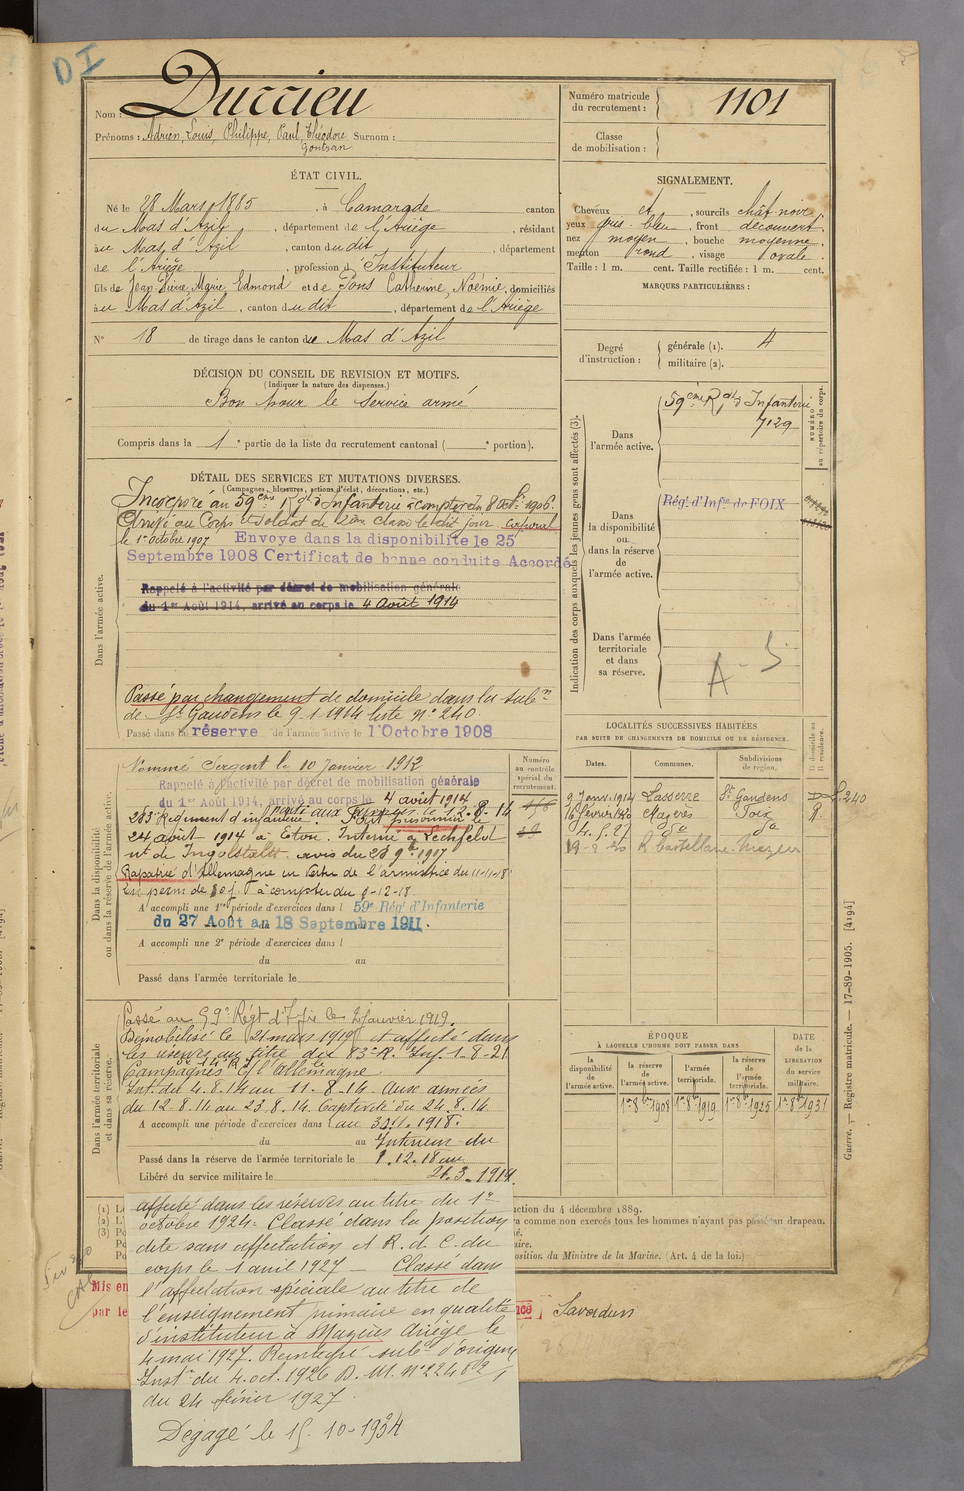 DI
Nom : Durrieu
Prénoms : Adrien, Louis, Philippe, Paul, Théodore Surnom :
Gontran
Numéro matricule du recrutement : 1101
Classe de mobilisation :
ÉTAT CIVIL.
Né le 28 Mars 1885, à Camarade canton
du Mas d'Azil, département de l'Ariège, résidant
au Mas d'Azil, canton du dit, département
de l'Ariège, profession d'Instituteur
fils de Jean Pierre, Marie Edmond et de Pons Catherine, Noémie, domiciliés
au Mas d'Azil, canton du dit, département de l'Ariège
N° 18 de tirage dans le canton du Mas d'Azil
SIGNALEMENT.
Cheveux et, sourcils chât. noir
yeux gris bleu, front découvert,
nez moyen, bouche moyenne,
menton rond, visage ovale.
Taille : 1 m. cent. Taille rectifiée : 1 m. cent.
MARQUES PARTICULIÈRES :
Degré d'instruction : générale (1). 4
militaire (2).
DÉCISION DU CONSEIL DE REVISION ET MOTIFS.
(Indiquer la nature des dispenses.)
Bon pour le service armé
Compris dans la 1e partie de la liste du recrutement cantonal ( e portion).
DÉTAIL DES SERVICES ET MUTATIONS DIVERSES.
(Campagnes, blessures, actions d'éclat, décorations, etc.)
Dans l'armée active.
Incorporé au 59ème Rgt d'Infanterie à compter du 8 Octe 1906.
Arrivé au Corps et soldat de 2ème classe le dit jour caporal
le 1er octobre 1907 Envoye dans la disponibilite le 25
Septembre 1908 Certificat de bonne conduite Accordé
Rappelé à l'activité par décret de mobilisation générale
du 1er Août 1914, arrivé au corps le 4 Août 1914
Passé par changement de domicile dans la subon
de St Gaudens le 9-1-1914 liste n° 240
Passé dans la réserve de l'armée active le 1 Octobre 1908
Dans la disponibilité ou dans la réserve de l'armée active.
Numéro au contrôle spécial du recrutement.
Nommé Sergent le 10 Janvier 1912
Rappelé à l'activité par décret de mobilisation générale
du 1er Août 1914, arrivé au corps le 4 août 1914
283e Régiment d'infanterie parti aux armées le 12-8-14
Fait prisonnier le
24 août 1914 à Eton. Interné à Lechfeld
nt de Ingolstadt avis du 28 9bre 1917
Rapatrié d'Allemagne en vertu de l'armistice du 11-11-18
A accompli une 1re période d'exercices dans l 59e Rég't d'Infanterie
du 27 Août au 18 Septembre 1911.
A accompli une 2e période d'exercices dans l
du au
Passé dans l'armée territoriale le
Dans l'armée territoriale et dans sa réserve.
Passé au 59e Régt d'Ifie le 2 janvier 1919.
Démobilisé le 21 mars 1919 et affecté dans
les réserves au titre du 83e R. Inf. 1-8-21
Campagnes c/ l'Allemagne
Int. du 4.8.14 au 11-8-14. Aux armées
du 12.8.14 au 23.8.14. Captivité du 24.8.14
A accompli une période d'exercices dans l au 30.11.1918.
du au Intérieur du
Passé dans la réserve de l'armée territoriale le 1.12.18 au
Libéré du service militaire le 21.3.1919
Indication des corps auxquels les jeunes gens sont affectés (3).
NUMÉRO au répertoire du corps.
Dans l'armée active.
59ème Rgt d'Infanterie
7129
Dans la disponibilité ou dans la réserve de l'armée active.
Régt d'Infie de FOIX
Dans l'armée territoriale et dans sa réserve.
A-5
LOCALITÉS SUCCESSIVES HABITÉES
PAR SUITE DE CHANGEMENTS DE DOMICILE OU DE RÉSIDENCE.
D domicile ou R résidence.
Dates. Communes. Subdivisions de région.
9 Janv. 1914 Lasserre St Gaudens L. 240
16 février 1920 Mazères Foix R.
ÉPOQUE
À LAQUELLE L'HOMME DOIT PASSER DANS
la disponibilité de l'armée active.
la réserve de l'armée active.
l'armée territoriale.
la réserve de l'armée territoriale.
DATE de la LIBÉRATION du service militaire.
1er 8bre 1908 1er 8bre 1919 1er 8bre 1925 1er 8bre 1931
Guerre. — Registre matricule. — 17-89-1905. [4194]
(1) ction du 4 décembre 1889.
(2) comme non exercés tous les hommes n'ayant pas passé au drapeau.
(3)
position du Ministre de la Marine. (Art. 4 de la loi.)
Mis en
par le
Saverdun
affecté dans les réserves au titre du 1er
octobre 1924 - Classé dans la position
dite sans affectation et R. d. C. du
corps le 1 avril 1927 — Classé dans
l'affectation spéciale au titre de
l'enseignement primaire en qualité
d'instituteur à Mazères Ariège le
4 mai 1927. Réintégré subon d'origine
Inston du 4 oct. 1926 B. M. N° 22462/1
du 24 février 1927.
Dégagé le 15-10-1934